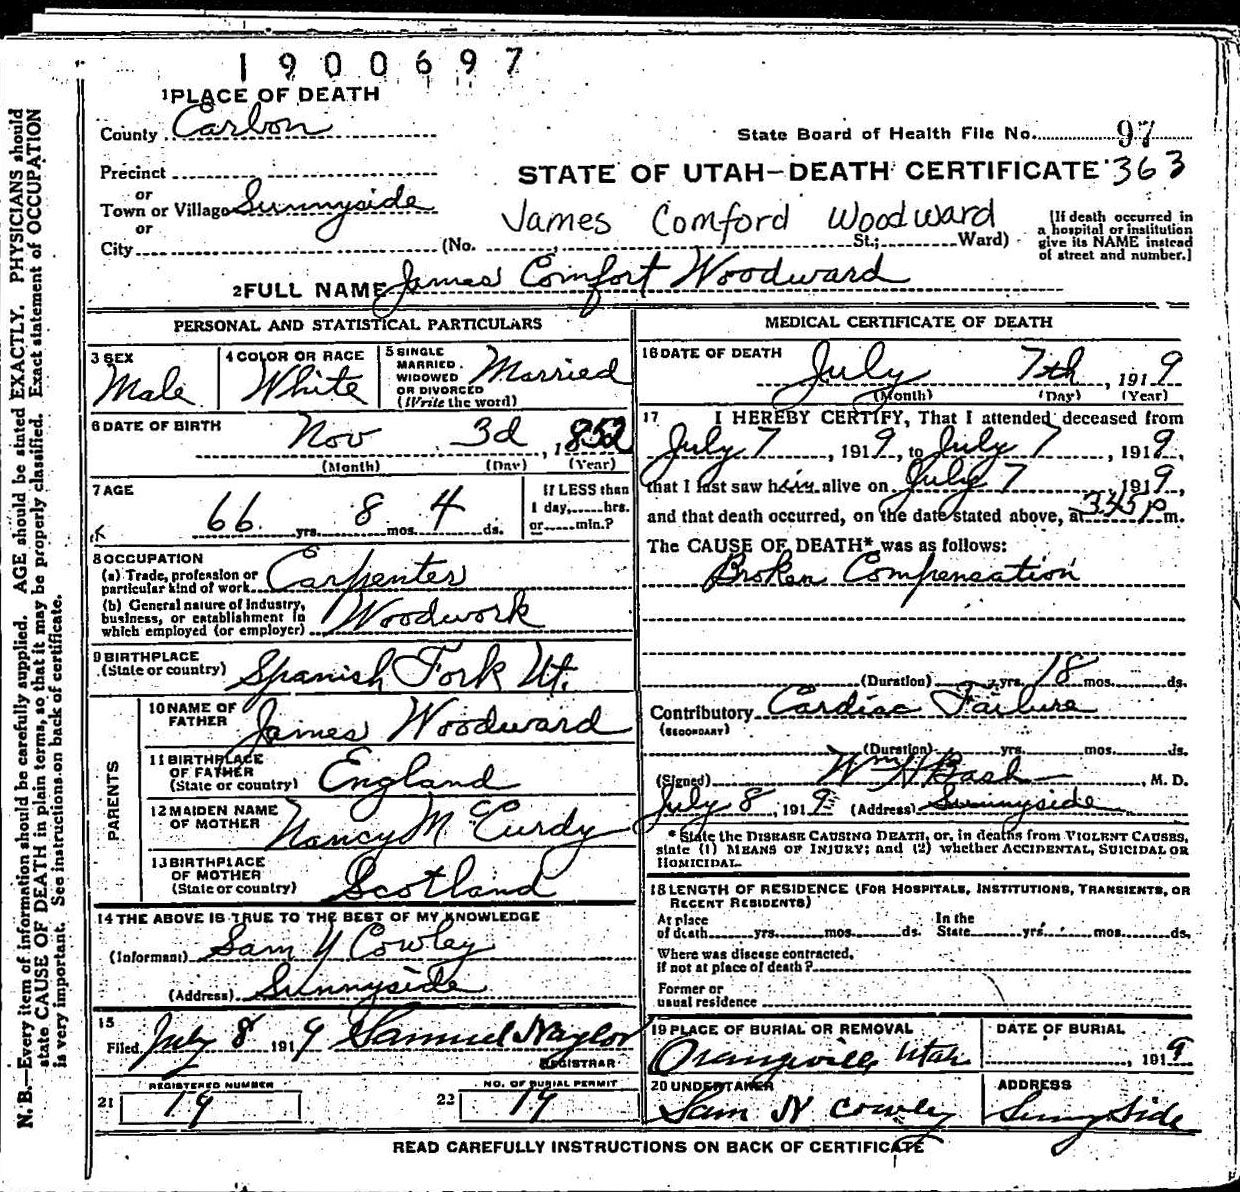 1900697
1 PLACE OF DEATH
County Carbon
State Board of Health File No. 97
Precinct
STATE OF UTAH—DEATH CERTIFICATE 363
or
Town or Village Sunnyside
or
James Comford Woodward
City (No. St.; Ward)
[If death occurred in
a hospital or institution
give its NAME instead
of street and number.]
2 FULL NAME James Comfort Woodward
PERSONAL AND STATISTICAL PARTICULARS
3 SEX Male
4 COLOR OR RACE White
5 SINGLE MARRIED. WIDOWED OR DIVORCED (Write the word) Married
6 DATE OF BIRTH
Nov 3d, 1852
(Month) (Day) (Year)
7 AGE
66 yrs. 8 mos. 4 ds.
If LESS than
1 day, hrs.
or min.?
8 OCCUPATION
(a) Trade, profession or
particular kind of work Carpenter
(b) General nature of industry,
business, or establishment in
which employed (or employer) Woodwork
9 BIRTHPLACE
(State or country) Spanish Fork Ut.
PARENTS
10 NAME OF
FATHER James Woodward
11 BIRTHPLACE
OF FATHER
(State or country) England
12 MAIDEN NAME
OF MOTHER Nancy McCurdy
13 BIRTHPLACE
OF MOTHER
(State or country) Scotland
14 THE ABOVE IS TRUE TO THE BEST OF MY KNOWLEDGE
(Informant) Sam N Cowley
(Address) Sunnyside
15
Filed July 8 1919 Samuel Naylor
REGISTRAR
REGISTERED NUMBER
21 19
NO. OF BURIAL PERMIT
22 19
MEDICAL CERTIFICATE OF DEATH
16 DATE OF DEATH
July 7th, 1919
(Month) (Day) (Year)
17 I HEREBY CERTIFY, That I attended deceased from
July 7, 1919, to July 7, 1919,
that I last saw him alive on July 7 1919,
and that death occurred, on the date stated above, at 345 P m.
The CAUSE OF DEATH* was as follows:
Broken Compensation
(Duration) yrs. 18 mos. ds.
Contributory Cardiac Failure
(SECONDARY)
(Duration) yrs. mos. ds.
(Signed) Wm H Bash, M. D.
July 8, 1919 (Address) Sunnyside
* State the DISEASE CAUSING DEATH, or, in deaths from VIOLENT CAUSES,
state (1) MEANS OF INJURY; and (2) whether ACCIDENTAL, SUICIDAL OR
HOMICIDAL.
18 LENGTH OF RESIDENCE (FOR HOSPITALS, INSTITUTIONS, TRANSIENTS, OR
RECENT RESIDENTS)
At place In the
of death yrs. mos. ds. State yrs. mos. ds.
Where was disease contracted,
if not at place of death?
Former or
usual residence
19 PLACE OF BURIAL OR REMOVAL
Orangeville Utah
DATE OF BURIAL
, 1919
20 UNDERTAKER
Sam N Cowley
ADDRESS
Sunny Side
READ CAREFULLY INSTRUCTIONS ON BACK OF CERTIFICATE
N. B.—Every item of information should be carefully supplied. AGE should be stated EXACTLY. PHYSICIANS should
state CAUSE OF DEATH in plain terms, so that it may be properly classified. Exact statement of OCCUPATION
is very important. See instructions on back of certificate.